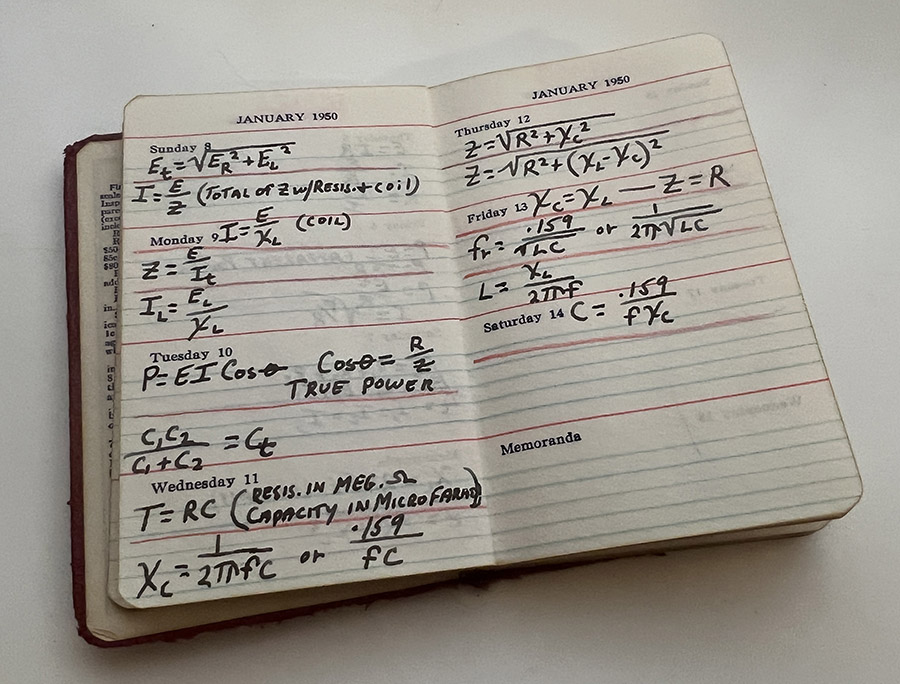 JANUARY 1950
Sunday 8
E_t = √(E_R² + E_L²)
I = E/Z (TOTAL OF Z W/RESIS. + COIL)
Monday 9 I = E/X_L (COIL)
Z = E/I_t
I_L = E_L/X_L
Tuesday 10
P = EI Cos θ Cos θ = R/Z
TRUE POWER
C₁C₂/(C₁ + C₂) = C_t
Wednesday 11
T = RC (RESIS. IN MEG. Ω
CAPACITY IN MICROFARAD)
X_C = 1/(2πfC) or .159/(fC)
JANUARY 1950
Thursday 12
Z = √(R² + X_C²)
Z = √(R² + (X_L - X_C)²)
Friday 13 X_C = X_L — Z = R
f_r = .159/√(LC) or 1/(2π√(LC))
L = X_L/(2πf)
Saturday 14 C = .159/(fX_C)
Memoranda